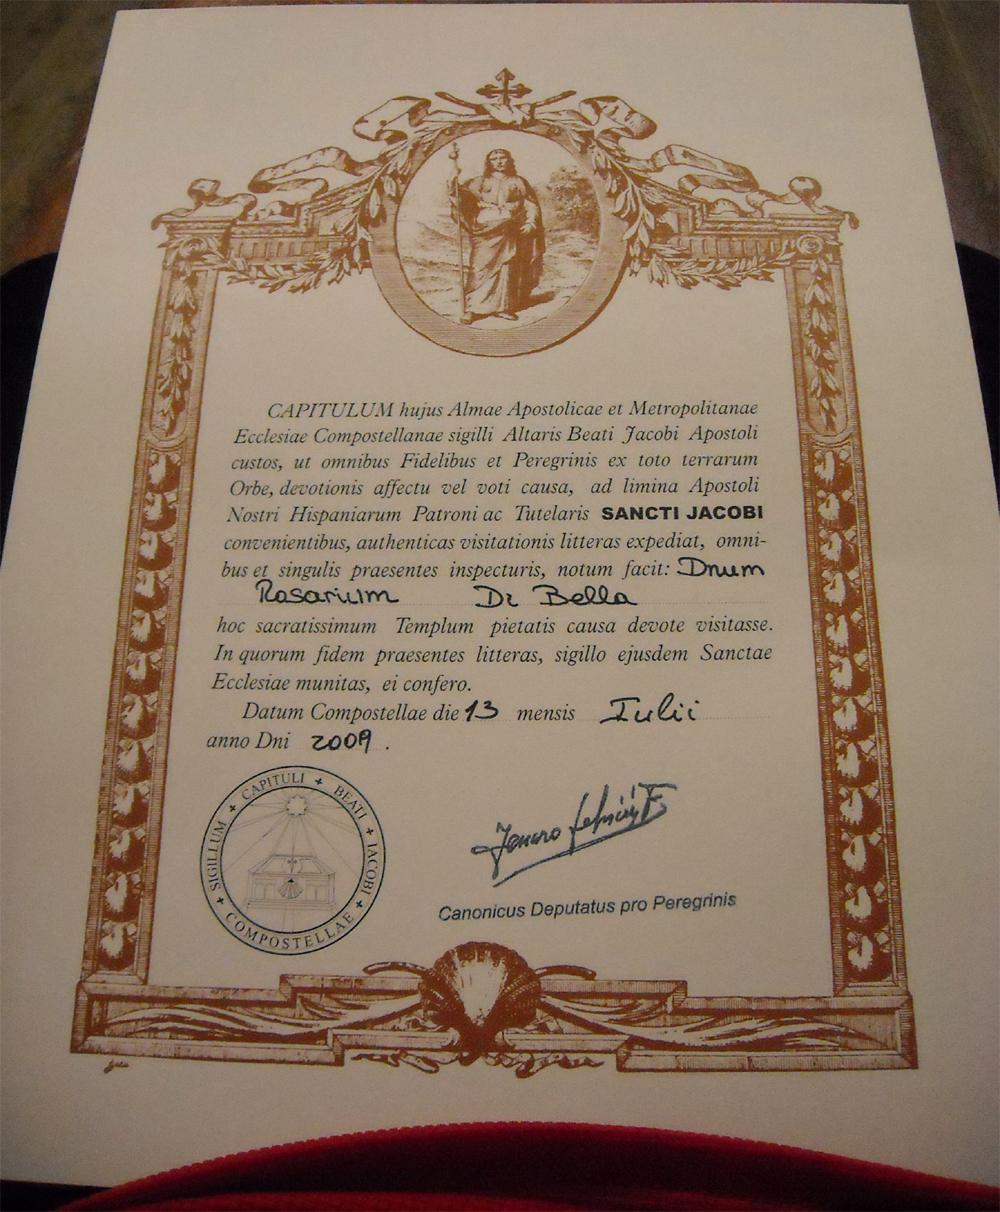 CAPITULUM hujus Almae Apostolicae et Metropolitanae
Ecclesiae Compostellanae sigilli Altaris Beati Jacobi Apostoli
custos, ut omnibus Fidelibus et Peregrinis ex toto terrarum
Orbe, devotionis affectu vel voti causa, ad limina Apostoli
Nostri Hispaniarum Patroni ac Tutelaris SANCTI JACOBI
convenientibus, authenticas visitationis litteras expediat, omni-
bus et singulis praesentes inspecturis, notum facit: Dnum
Rosarium Di Bella
hoc sacratissimum Templum pietatis causa devote visitasse.
In quorum fidem praesentes litteras, sigillo ejusdem Sanctae
Ecclesiae munitas, ei confero.
Datum Compostellae die 13 mensis Iulii
anno Dni 2009.
SIGILLUM + CAPITULI + BEATI + IACOBI + COMPOSTELLAE +
Canonicus Deputatus pro Peregrinis